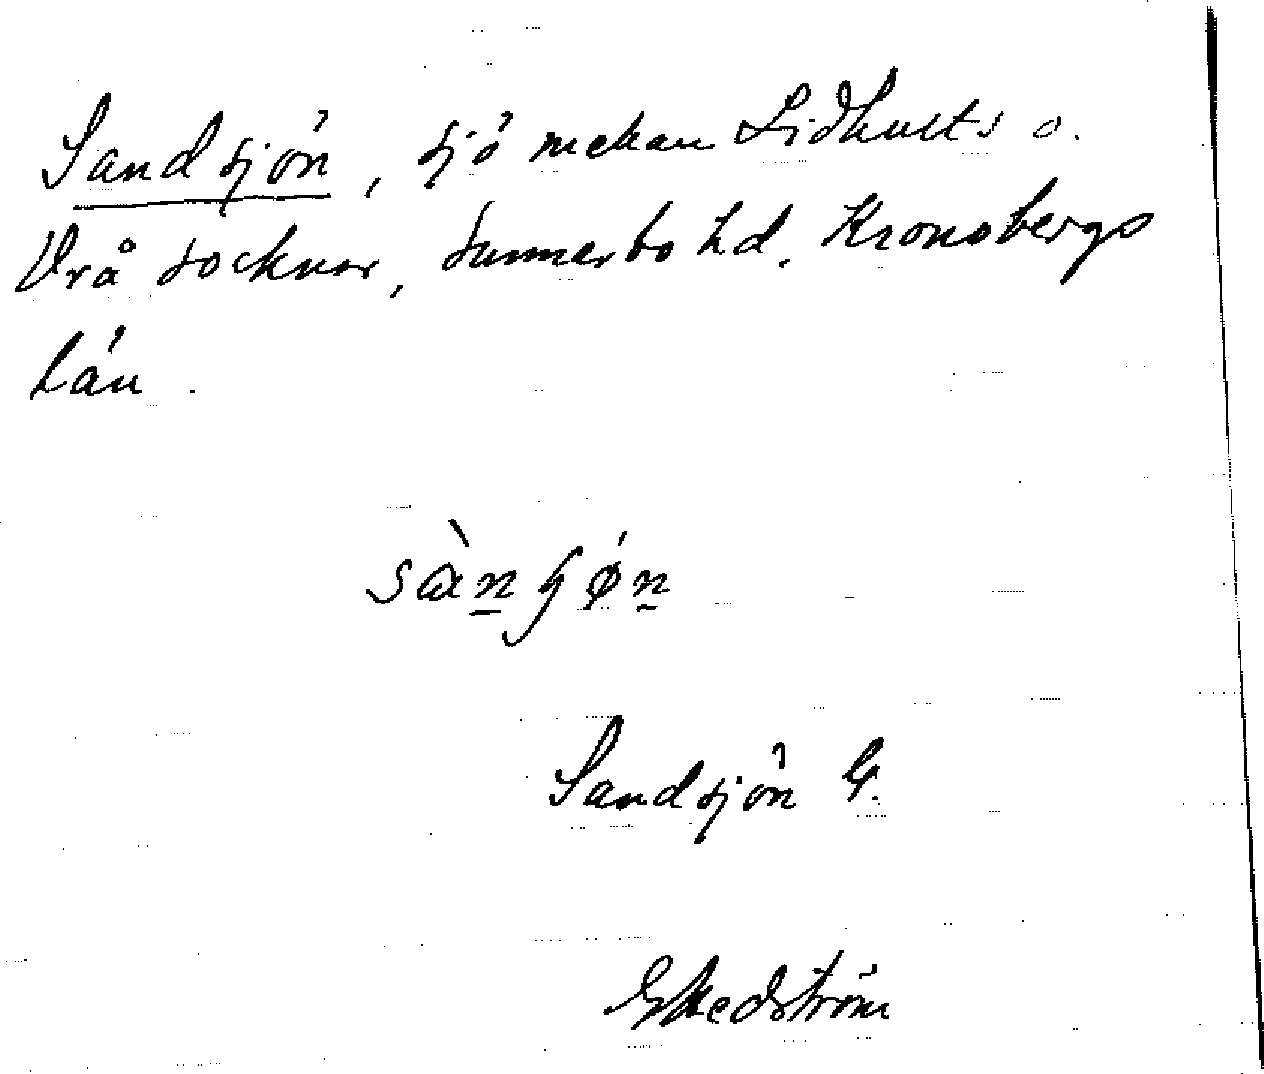 Sandsjön, sjö mellan Lidhults o.
Vrå socknar, Sunnerbo hd, Kronobergs
län.
sànɧǿn
Sandsjön G.
G Hedström